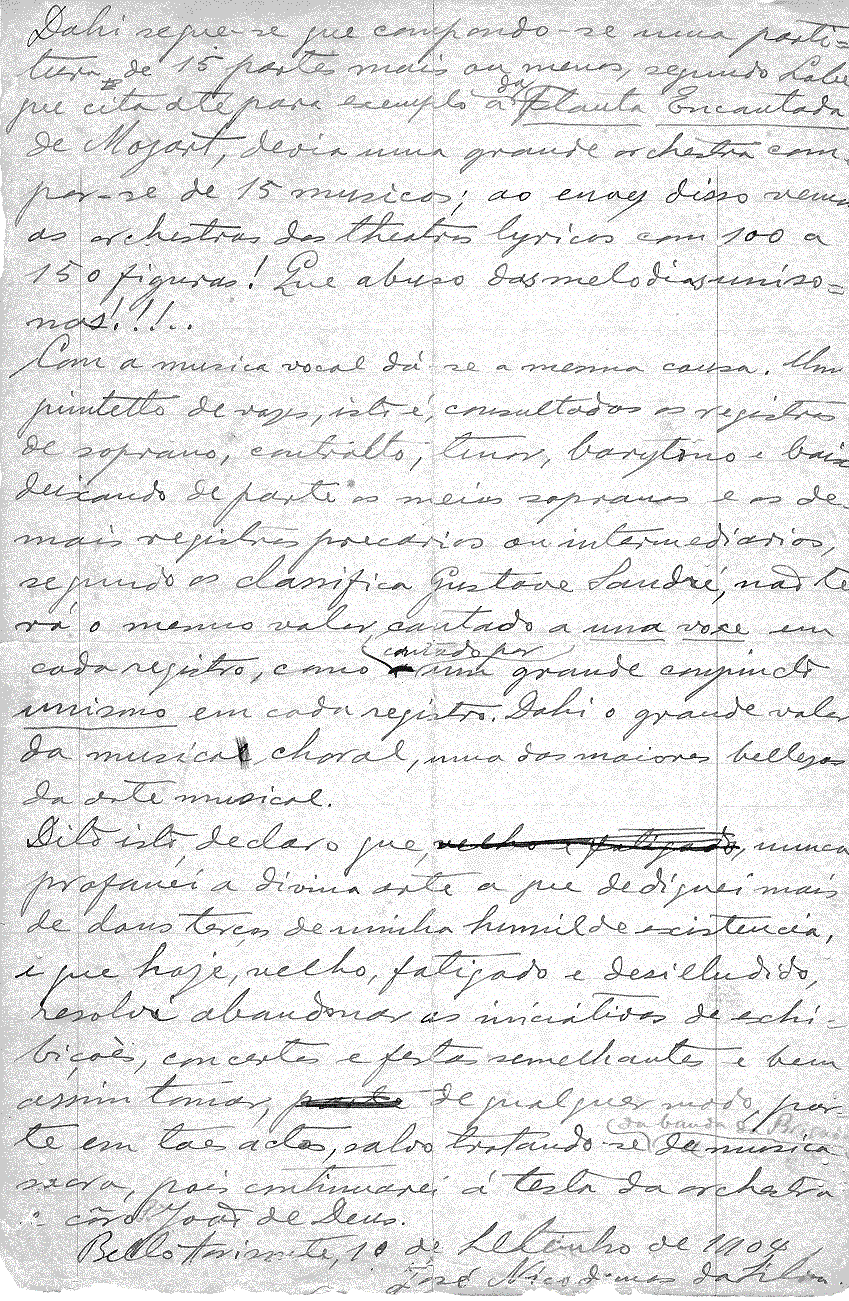 Dahi segue-se que compondo-se uma parti=
tura de 15 partes mais ou menos, segundo Labe
que cita até para exemplo a da Flauta Encantada
de Mozart, devia uma grande orchestra com-
por-se de 15 musicos; ao envez disso vemos
as orchestras dos theatros lyricos com 100 a
150 figuras! Que abuso das melodias uniso=
nas!!!..
Com a musica vocal dá-se a mesma causa. Um
quintetto de vozes, isto é, consultados os registros
de soprano, contralto, tenor, barytono e baix
deixando de parte os meios sopranos e os de-
mais registros precarios ou intermediarios,
segundo os classifica Gustave Landré, não te
rá o mesmo valor cantado a una voce em
cantado por
cada registro, como um grande conjuncto
unisono em cada registro. Dahi o grande valor
da musica choral, uma das maiores bellezas
da arte musical.
Dito isto, declaro que, velho e fatigado, nunca
profanei a divina arte a que dediquei mais
de dous terços de minha humilde existencia,
e que hoje, velho, fatigado e desilludido,
resolvi abandonar as iniciativas de exhi-
bições, concertos e festas semelhantes e bem
assim tomar, parte de qualquer modo, par-
(da banda da Brigada
te em taes actos, salvo tratando-se da musica
sacra, pois continuarei á testa da orchestra
e côro João de Deus.
Bello Horisonte, 10 de Setembro de 1904
José Nicodemos da Silva.